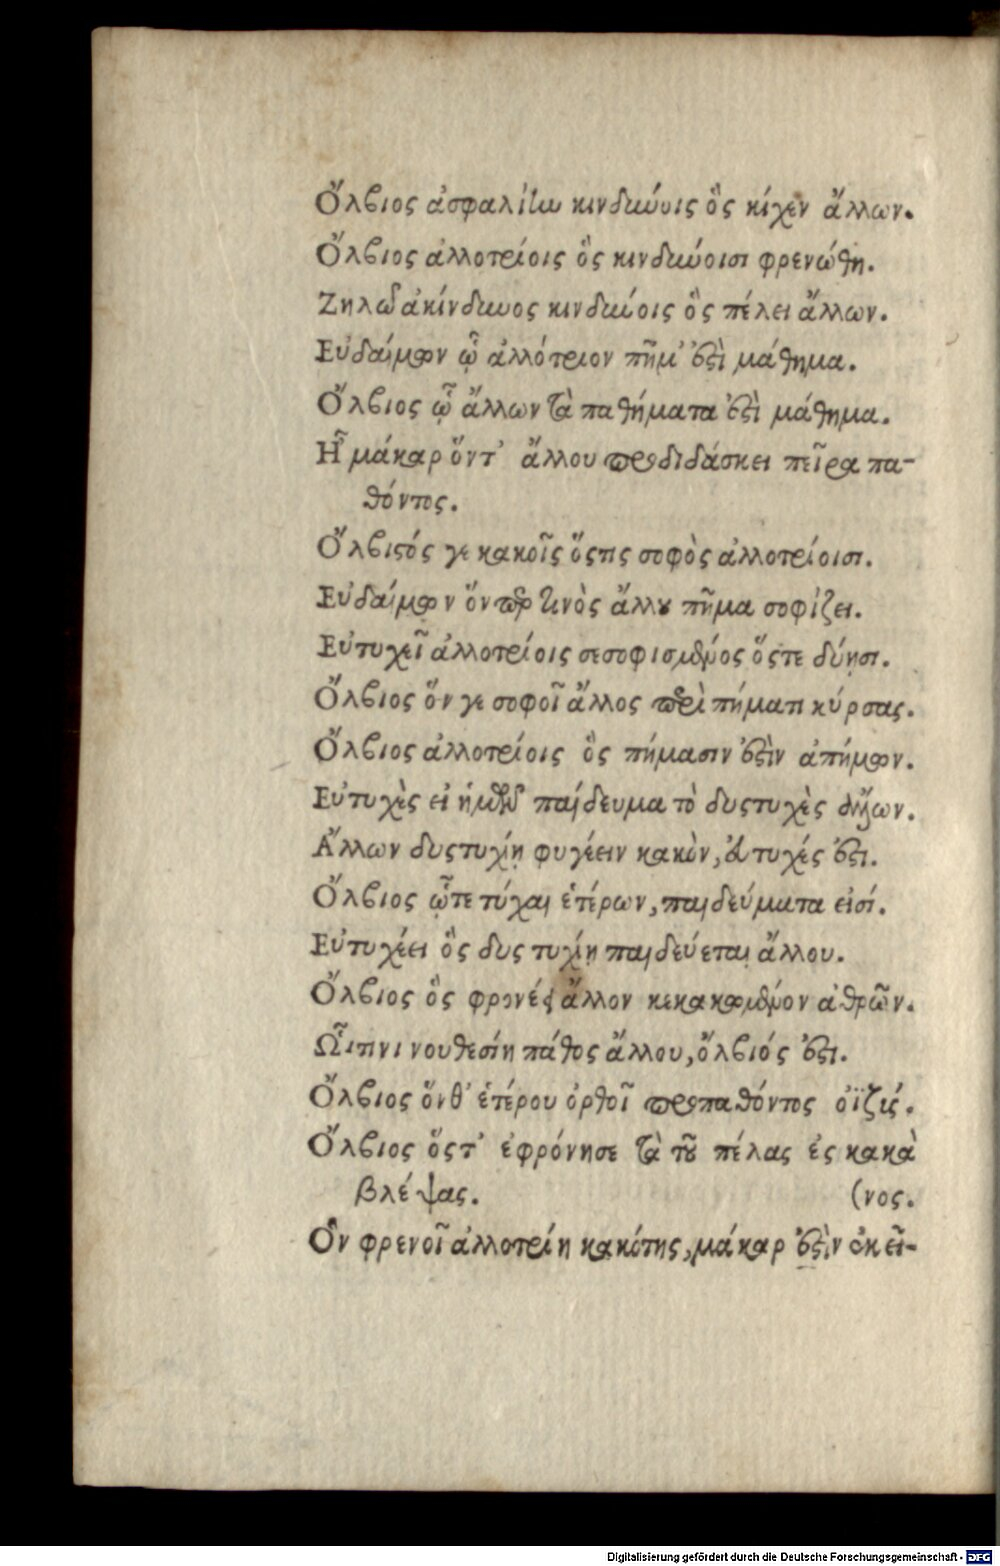 Ὄλβιος ἀσφαλίην κινδύνοις ὃς κίχεν ἄλλων.
Ὄλβιος ἀλλοτρίοις ὃς κινδύνοισι φρενώθη.
Ζηλῶ ἀκίνδυνος κινδύνοις ὃς πέλει ἄλλων.
Εὐδαίμων ᾧ ἀλλότριον πῆμ' ἐστὶ μάθημα.
Ὄλβιος ᾧ ἄλλων τὰ παθήματα ἐστὶ μάθημα.
Ἦ μάκαρ ὅντ' ἄλλου προδιδάσκει πεῖρα πα-
θόντος.
Ὄλβιστός γε κακοῖς ὅστις σοφὸς ἀλλοτρίοισι.
Εὐδαίμων ὅνπερ τινὸς ἄλλου πῆμα σοφίζει.
Εὐτυχεῖ ἀλλοτρίοις σεσοφισμένος ὅστε δύῃσι.
Ὄλβιος ὅν γε σοφοῖ ἄλλος περὶ πήματι κύρσας.
Ὄλβιος ἀλλοτρίοις ὃς πήμασιν ἐστὶν ἀπήμων.
Εὐτυχὲς εἰ ἡμῖν παίδευμα τὸ δυστυχὲς ἄλλων.
Ἄλλων δυστυχίῃ φυγέειν κακὸν, εὐτυχές ἐστι.
Ὄλβιος ᾧτε τύχαι ἑτέρων, παιδεύματα εἰσί.
Εὐτυχέει ὃς δυστυχίῃ παιδεύεται ἄλλου.
Ὄλβιος ὃς φρονέει ἄλλον κεκακωμένον ἀθρῶν.
Ὧιτινι νουθεσίη πάθος ἄλλου, ὄλβιός ἐστι.
Ὄλβιος ὅνθ' ἑτέρου ὀρθοῖ προπαθόντος ὀϊζύς.
Ὄλβιος ὅστ' ἐφρόνησε τὰ τοῦ πέλας ἐς κακὰ
βλέψας. (νος.
Ὃν φρενοῖ ἀλλοτρίη κακότης, μάκαρ ἐστὶν ἐκεῖ-
Digitalisierung gefördert durch die Deutsche Forschungsgemeinschaft - DFG